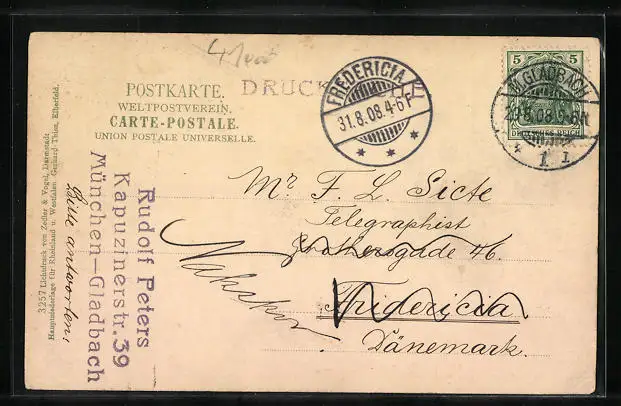 4 Mont
POSTKARTE.
WELTPOSTVEREIN.
CARTE-POSTALE.
UNION POSTALE UNIVERSELLE.
DRUCK
FREDERICIA
31.8.08.4-6F
5 5
DEUTSCHES REICH
M.GLADBACH
29.8.08.5-6N
* 1 I
Mr F. L. Sicte
Telegraphist
gade 46.
Fridericia
Dänemark.
Nakskov
Rudolf Peters
Kapuzinerstr. 39
München-Gladbach
Bitte antworten,
3257 Lichtdruck von Zedler & Vogel, Darmstadt
Hauptniederlage für Rheinland u. Westfalen Gerhard Thien, Elberfeld.